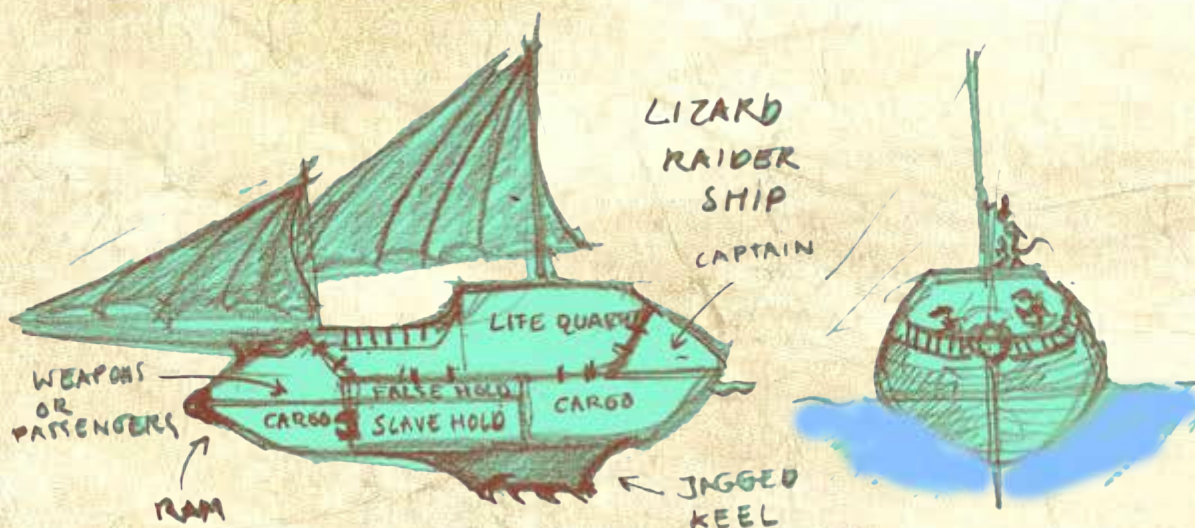 LIZARD
RAIDER
SHIP
CAPTAIN
LIFE QUART
WEAPONS
OR
PASSENGERS
FALSE HOLD
CARGO
SLAVE HOLD
CARGO
RAM
JAGGED
KEEL